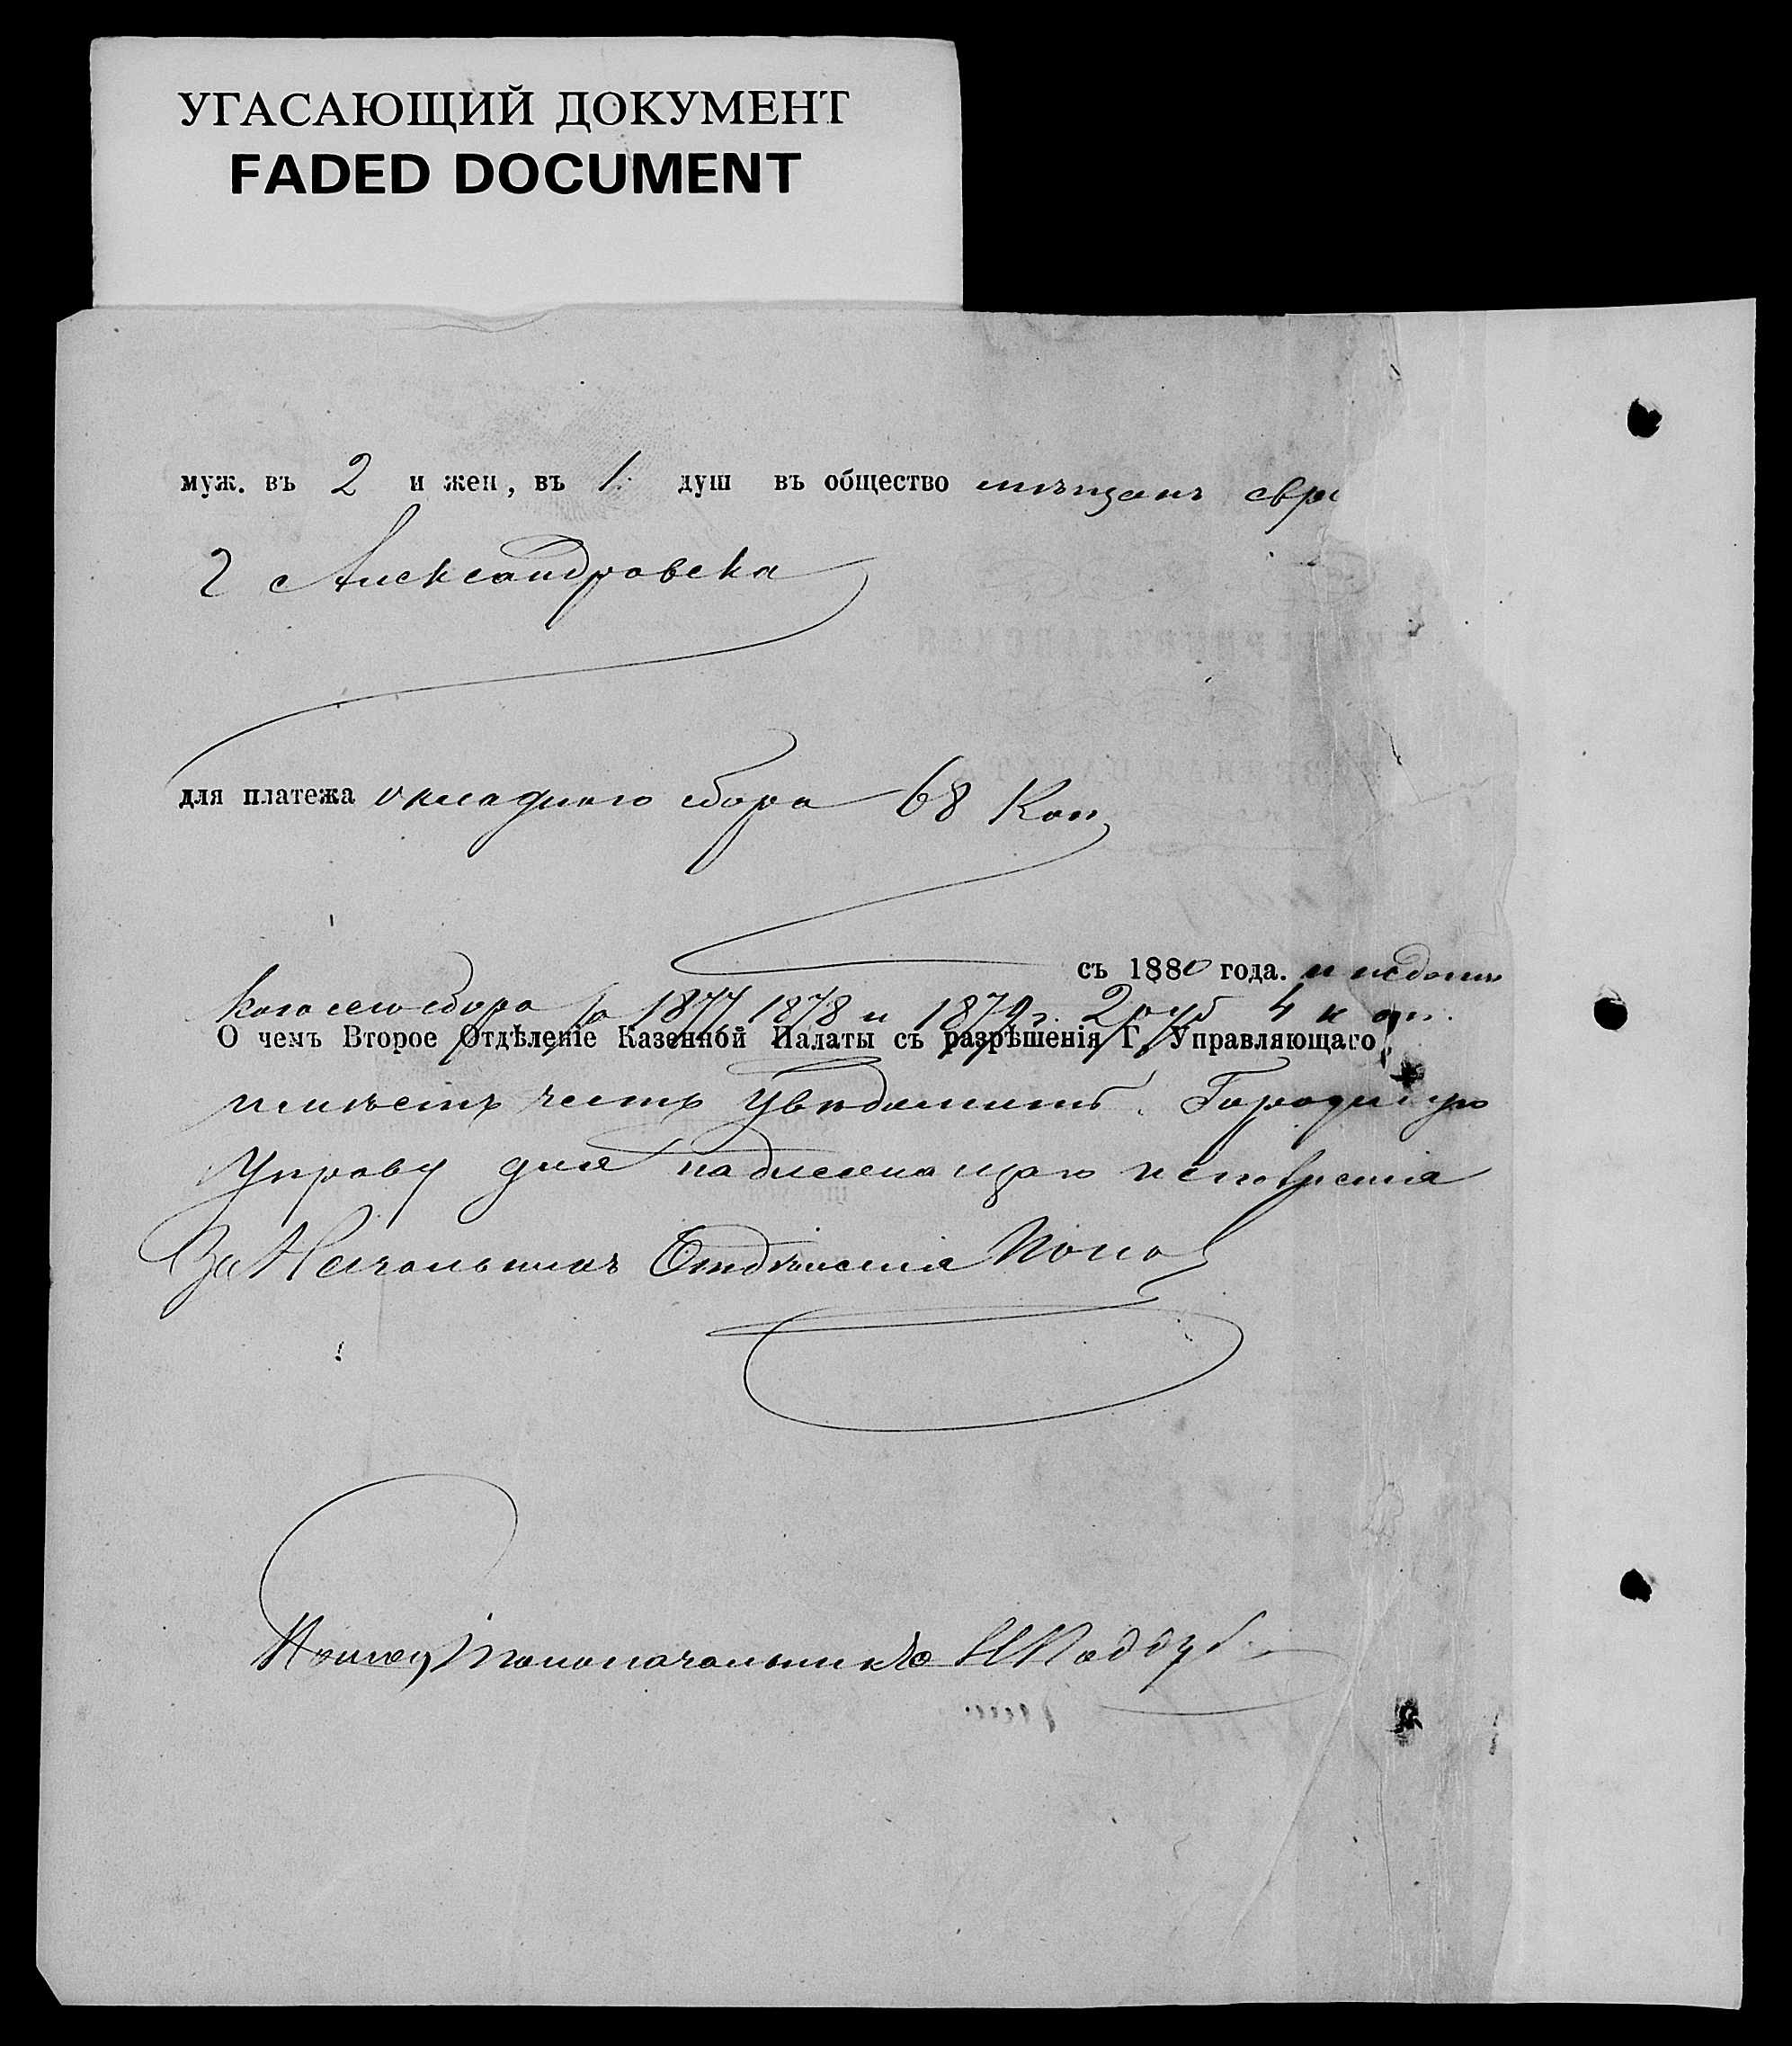 УГАСАЮЩИЙ ДОКУМЕНТ
FADED DOCUMENT
муж. въ 2 и жен, въ 1 душ въ общество мѣщанъ евре
г Александровска
для платежа окладнаго сбора 68 Коп
съ 1880 года. и недоим
сбора за 1877 1878 и 1879 г. 2 руб 4 коп.
О чемъ Второе Отдѣленіе Казенной Палаты съ разрѣшенія Г. Управляющаго
имѣетъ честь увѣдомить Городскую
Управу для надлежащаго исполненія
За Начальника Отдѣленія Попов
Столоначальника